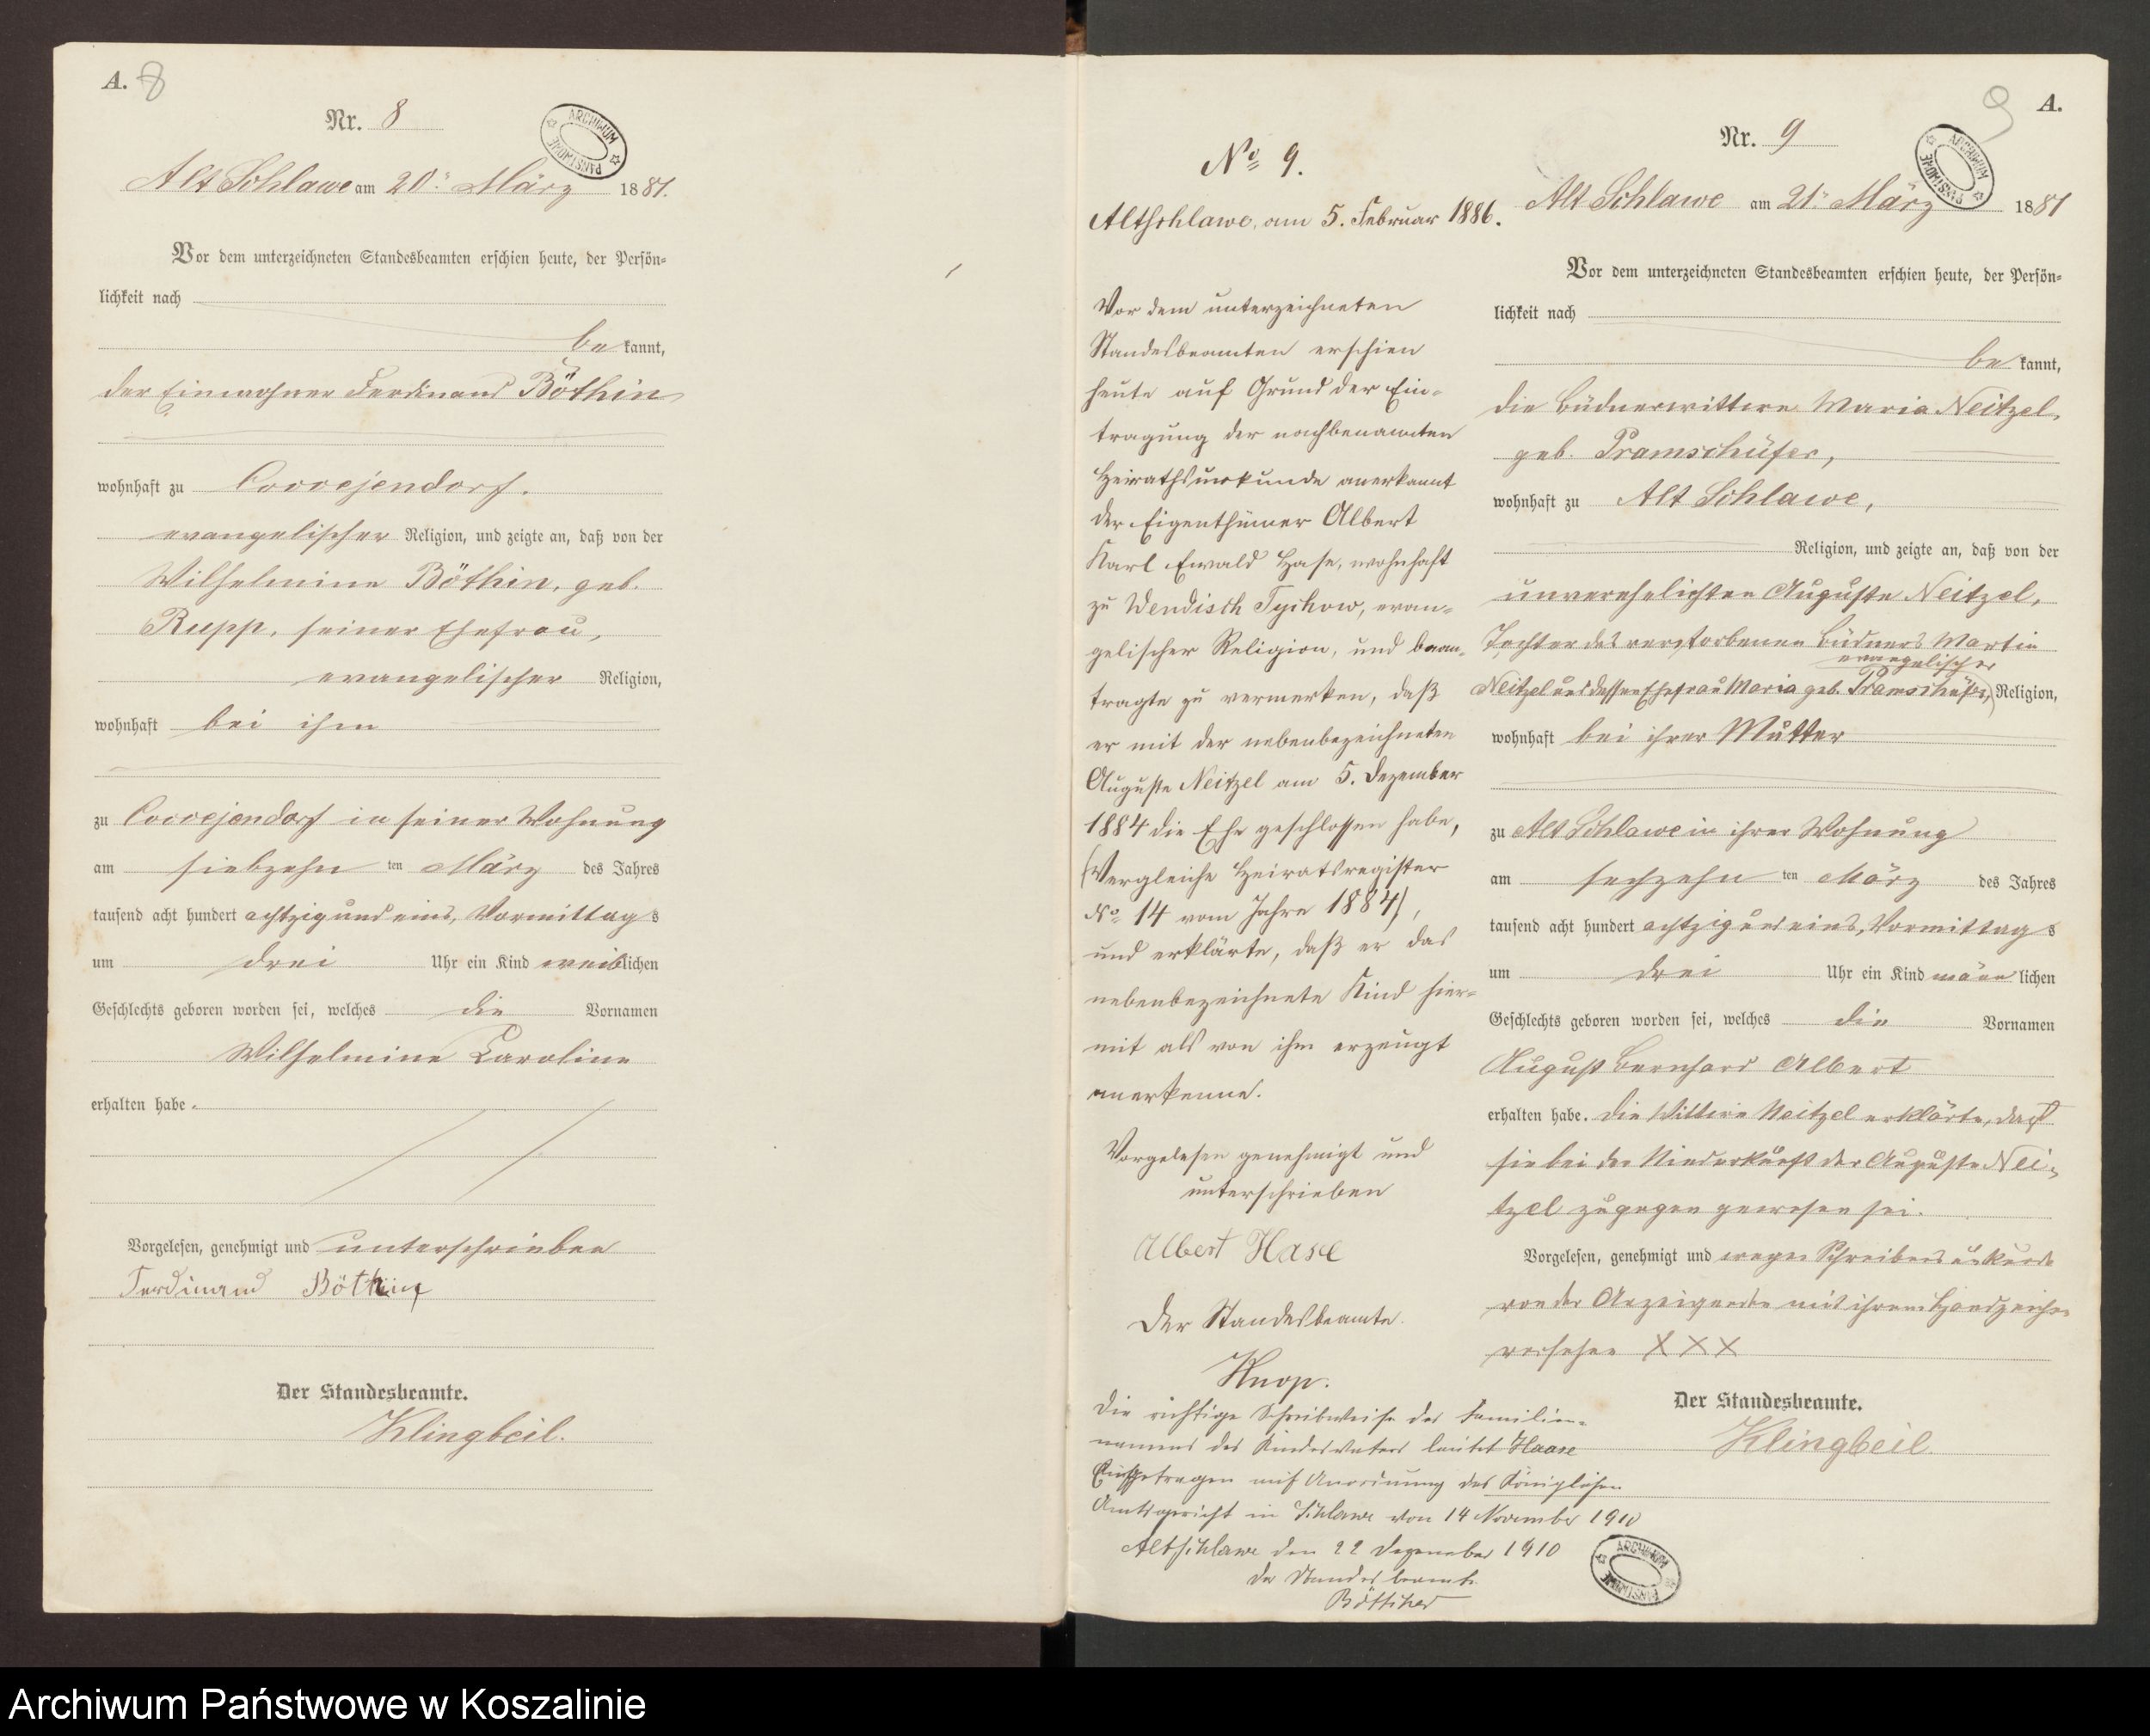 A. 8
Nr. 8
ARCHIWUM PAŃSTWOWE
Alt Schlawe am 20ten März 1881.
Vor dem unterzeichneten Standesbeamten erschien heute, der Persön-
lichkeit nach
be kannt,
der Einwohner Ferdinand Böthin
wohnhaft zu Coccejendorf.
evangelischer Religion, und zeigte an, daß von der
Wilhelmine Böthin, geb.
Rupp, seiner Ehefrau,
evangelischer Religion,
wohnhaft bei ihm
zu Coccejendorf in seiner Wohnung
am siebzehn ten März des Jahres
tausend acht hundert achtzig und eins, Vormittag s
um drei Uhr ein Kind weiblichen
Geschlechts geboren worden sei, welches die Vornamen
Wilhelmine Caroline
erhalten habe.
Vorgelesen, genehmigt und unterschrieben
Ferdinand Böthin
Der Standesbeamte.
Klingbeil.
No 9.
Altschlawe, am 5. Februar 1886.
Vor dem unterzeichneten
Standesbeamten erschien
heute auf Grund der Ein-
tragung der nachbenannten
Heirathsurkunde anerkannt
der Eigenthümer Albert
Karl Ewald Hase, wohnhaft
zu Wendisch Tychow, evan-
gelischer Religion, und bean-
tragte zu vermerken, daß
er mit der nebenbezeichneten
Auguste Neitzel am 5. Dezember
1884 die Ehe geschlossen habe,
(Vergleiche Heiratsregister
No 14 vom Jahre 1884),
und erklärte, daß er das
nebenbezeichnete Kind hier-
mit als von ihm erzeugt
anerkenne.
Vorgelesen genehmigt und
unterschrieben
Albert Hase
Der Standesbeamte.
Knop.
Die richtige Schreibweise des Familien-
namens des Kindesvaters lautet Haase
Eingetragen auf Anordnung des Königlichen
Amtsgericht in Schlawe von 14 November 1910
Altschlawe den 22 Dezember 1910
Der Standesbeamte.
Böttcher
9 A.
Nr. 9
ARCHIWUM PAŃSTWOWE
Alt Schlawe am 21ten März 1881
Vor dem unterzeichneten Standesbeamten erschien heute, der Persön-
lichkeit nach
be kannt,
die Büdnerwittwe Maria Neitzel,
geb. Pramschüfer,
wohnhaft zu Alt Schlawe,
Religion, und zeigte an, daß von der
unverehelichten Auguste Neitzel,
Tochter des verstorbenen Büdners Martin
evangelischer
Neitzel und dessen Ehefrau Maria geb. Pramschüfer, Religion,
wohnhaft bei ihrer Mutter
zu Alt Schlawe in ihrer Wohnung
am sechzehn ten März des Jahres
tausend acht hundert achtzig und eins, Vormittag s
um drei Uhr ein Kind männ lichen
Geschlechts geboren worden sei, welches die Vornamen
August Bernhard Albert
erhalten habe. Die Wittwe Neitzel erklärte, daß
sie bei der Niederkunft der Auguste Nei-
tzel zugegen gewesen sei.
Vorgelesen, genehmigt und wegen Schreibensunkunde
von der Anzeigenden mit ihrem Handzeichen
versehen XXX
Der Standesbeamte.
Klingbeil.
ARCHIWUM PAŃSTWOWE
Archiwum Państwowe w Koszalinie